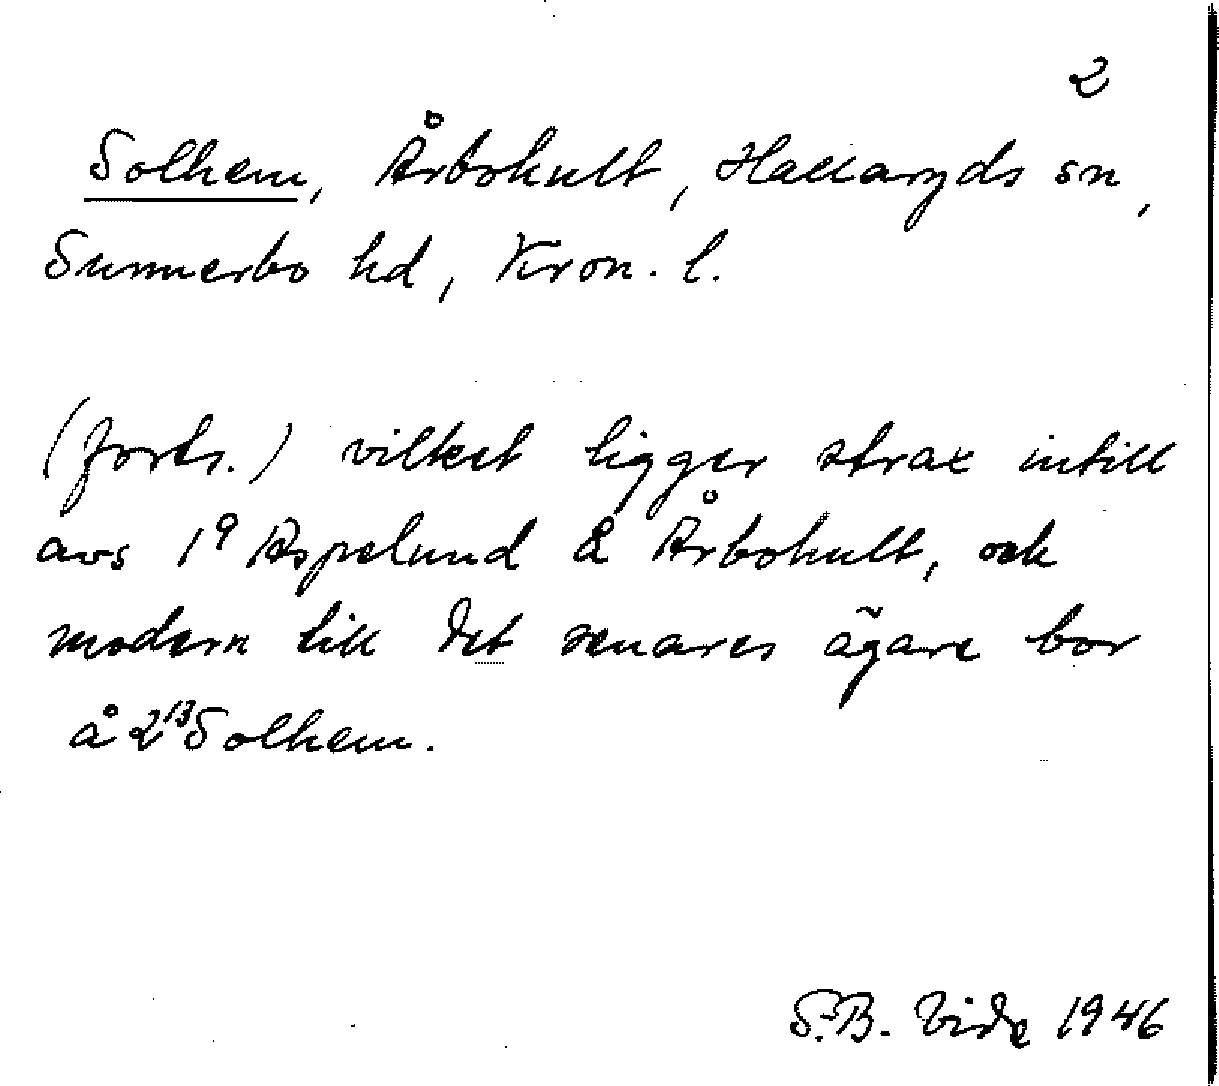 2
Solhem, Årbohult, Hallaryds sn,
Sunnerbo hd, Kron. l.
(forts.) vilket ligger strax intill
avs 1⁹ Aspelund å Årbohult, och
modern till det senares ägare bor
å 2¹³ Solhem.
S.B. Vide 1946